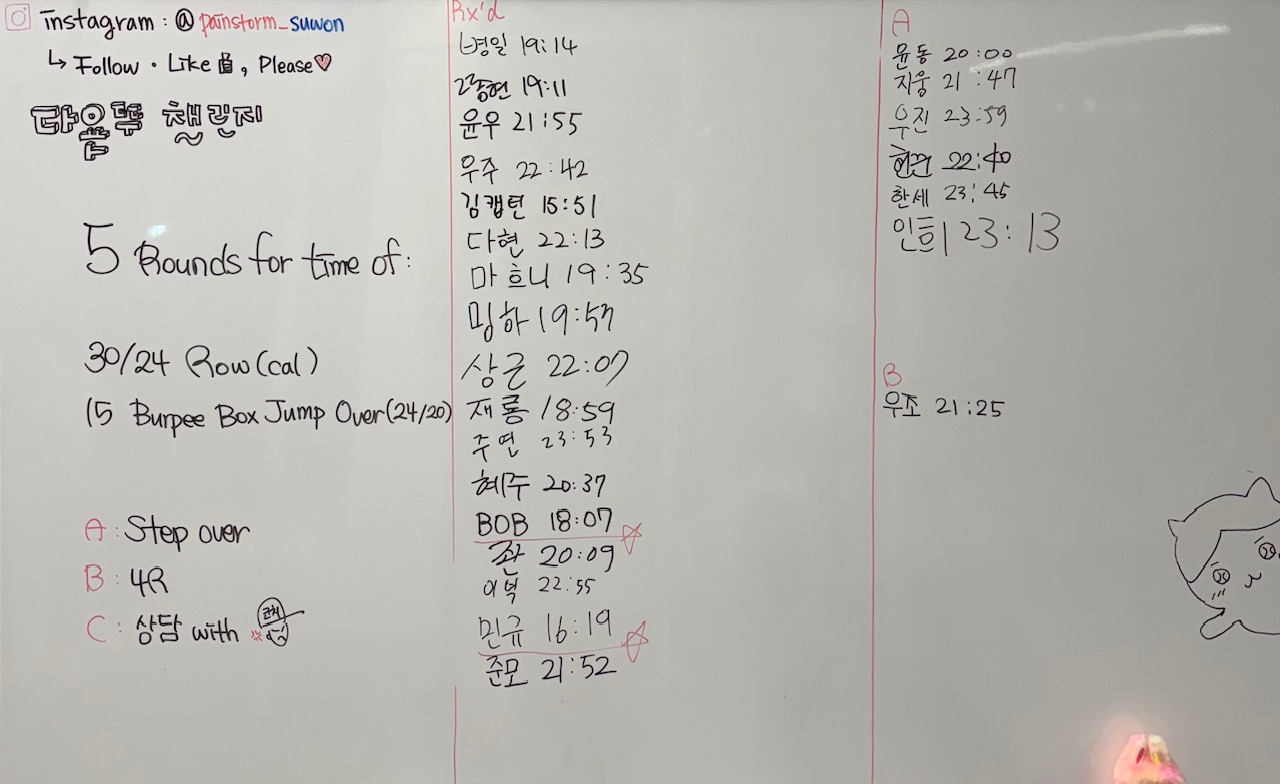 instagram : @ painstorm_suwon
↳ Follow · Like 👍, Please♥
다음뚝 챌린지
5 Rounds for time of:
30/24 Row(cal)
15 Burpee Box Jump Over(24/20)
A : Step over
B : 4R
C : 상담 with 코치
Rx'd
병일 19:14
고종현 19:11
윤우 21:55
우주 22:42
김캡틴 15:51
다현 22:13
마흐니 19:35
밍하 19:57
상근 22:07
재롱 18:59
주연 23:53
혜주 20:37
BOB 18:07 ☆
좐 20:09
이넉 22:55
민규 16:19 ☆
준모 21:52
A
윤동 20:00
지웅 21:47
우진 23:59
현관 22:40
한세 23:45
인트 | 23:13
B
우조 21:25